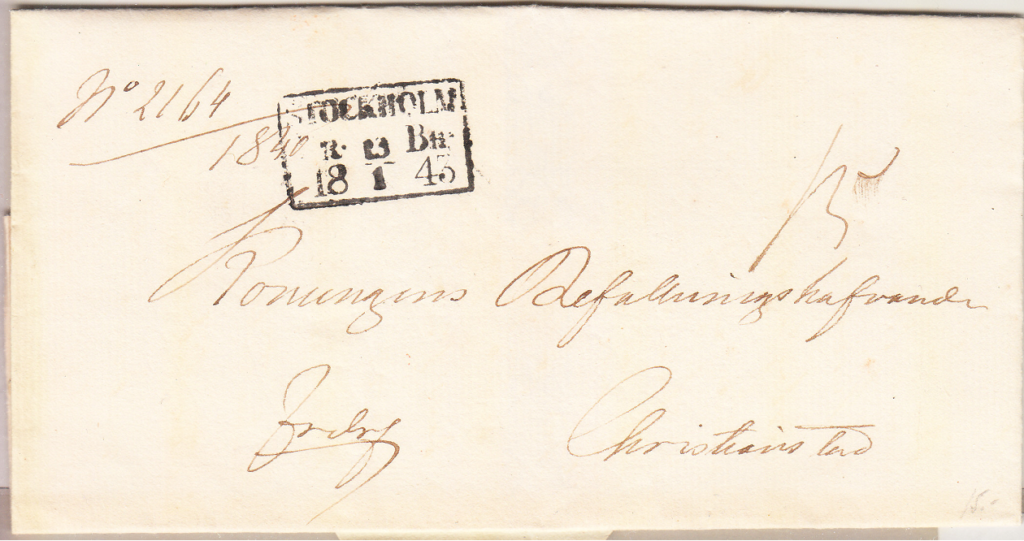 No 2164
1840
STOCKHOLM
R. 13 BR
18 1 43
15
Konungens Befallningshafvande
Christianstad
15.-